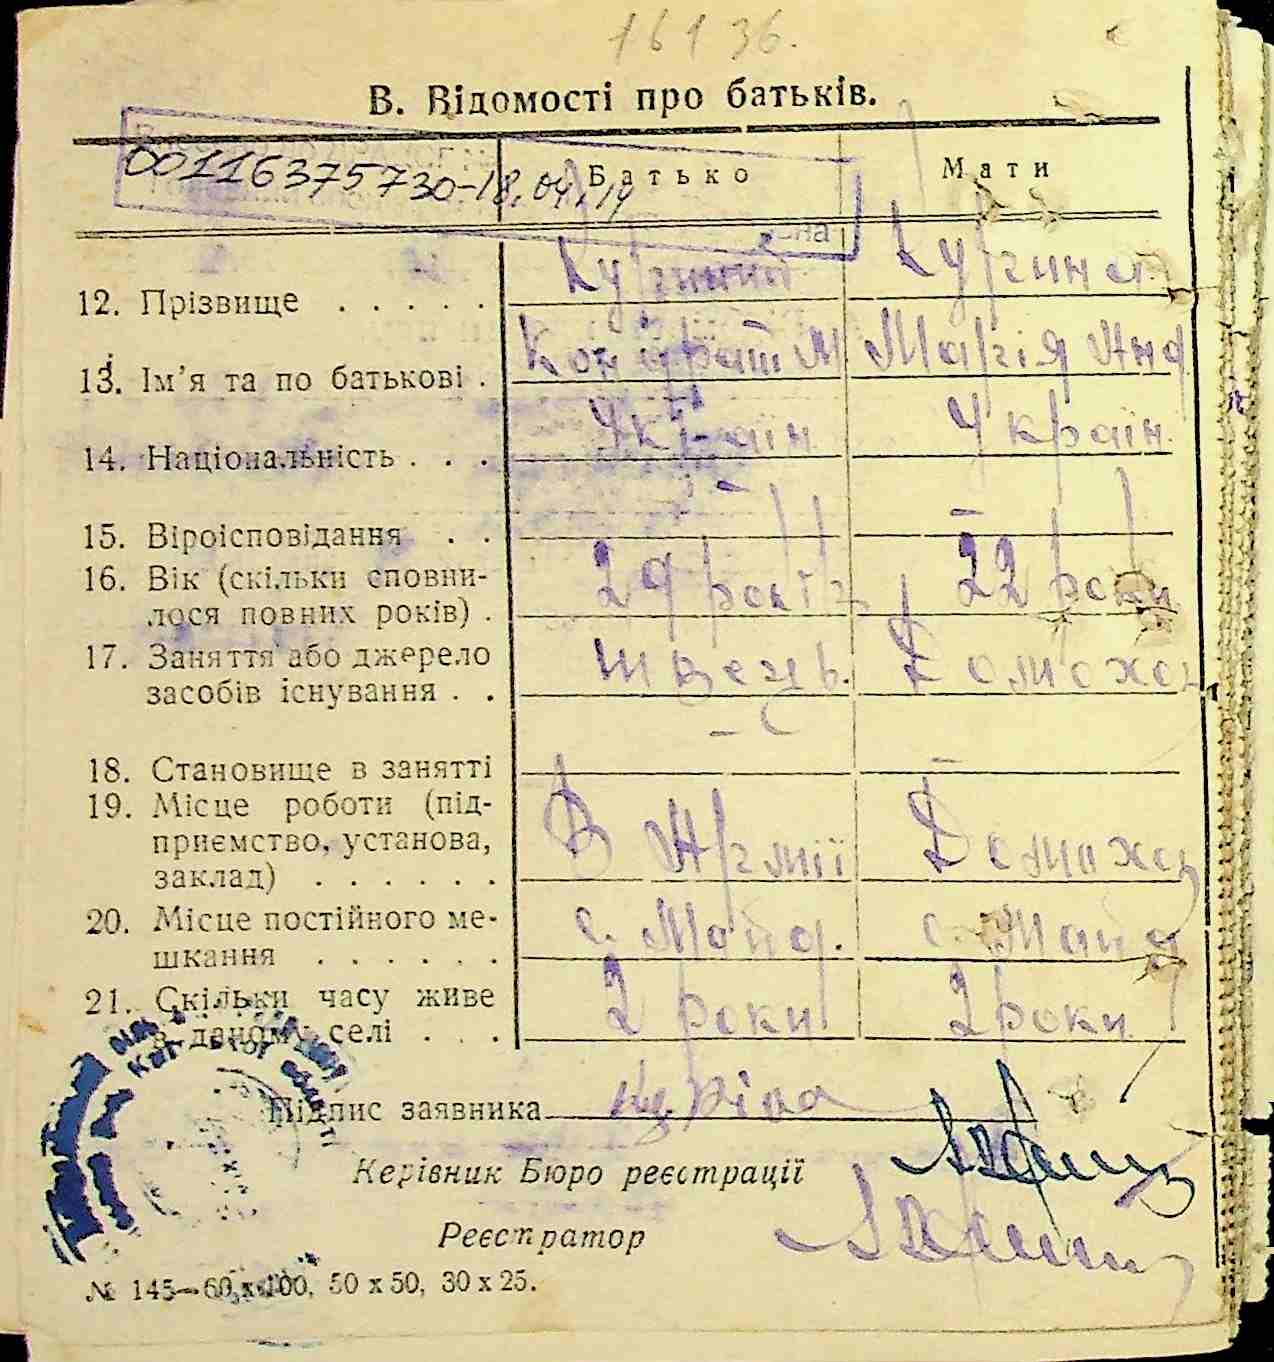 16136.
В. Відомості про батьків.
00116375730-18.04.19
Батько Мати
12. Прізвище . . . . .
13. Ім'я та по батькові . Кондрат М Марія Анд
14. Національність . . . Україн Україн.
15. Віроісповідання . . – –
16. Вік (скільки сповни-
лося повних років) . 29 років 22 роки
17. Заняття або джерело
засобів існування . . швець. Домохоз
18. Становище в занятті – –
19. Місце роботи (під-
приємство, установа,
заклад) . . . . . . В Армії Домохоз
20. Місце постійного ме-
шкання . . . . . . с. Майд. с. Майд
21. Скільки часу живе
в даному селі . . . 2 роки 2 роки
Підпис заявника
Керівник Бюро реєстрації
Реєстратор
№ 145—60 x 100, 50 x 50, 30 x 25.